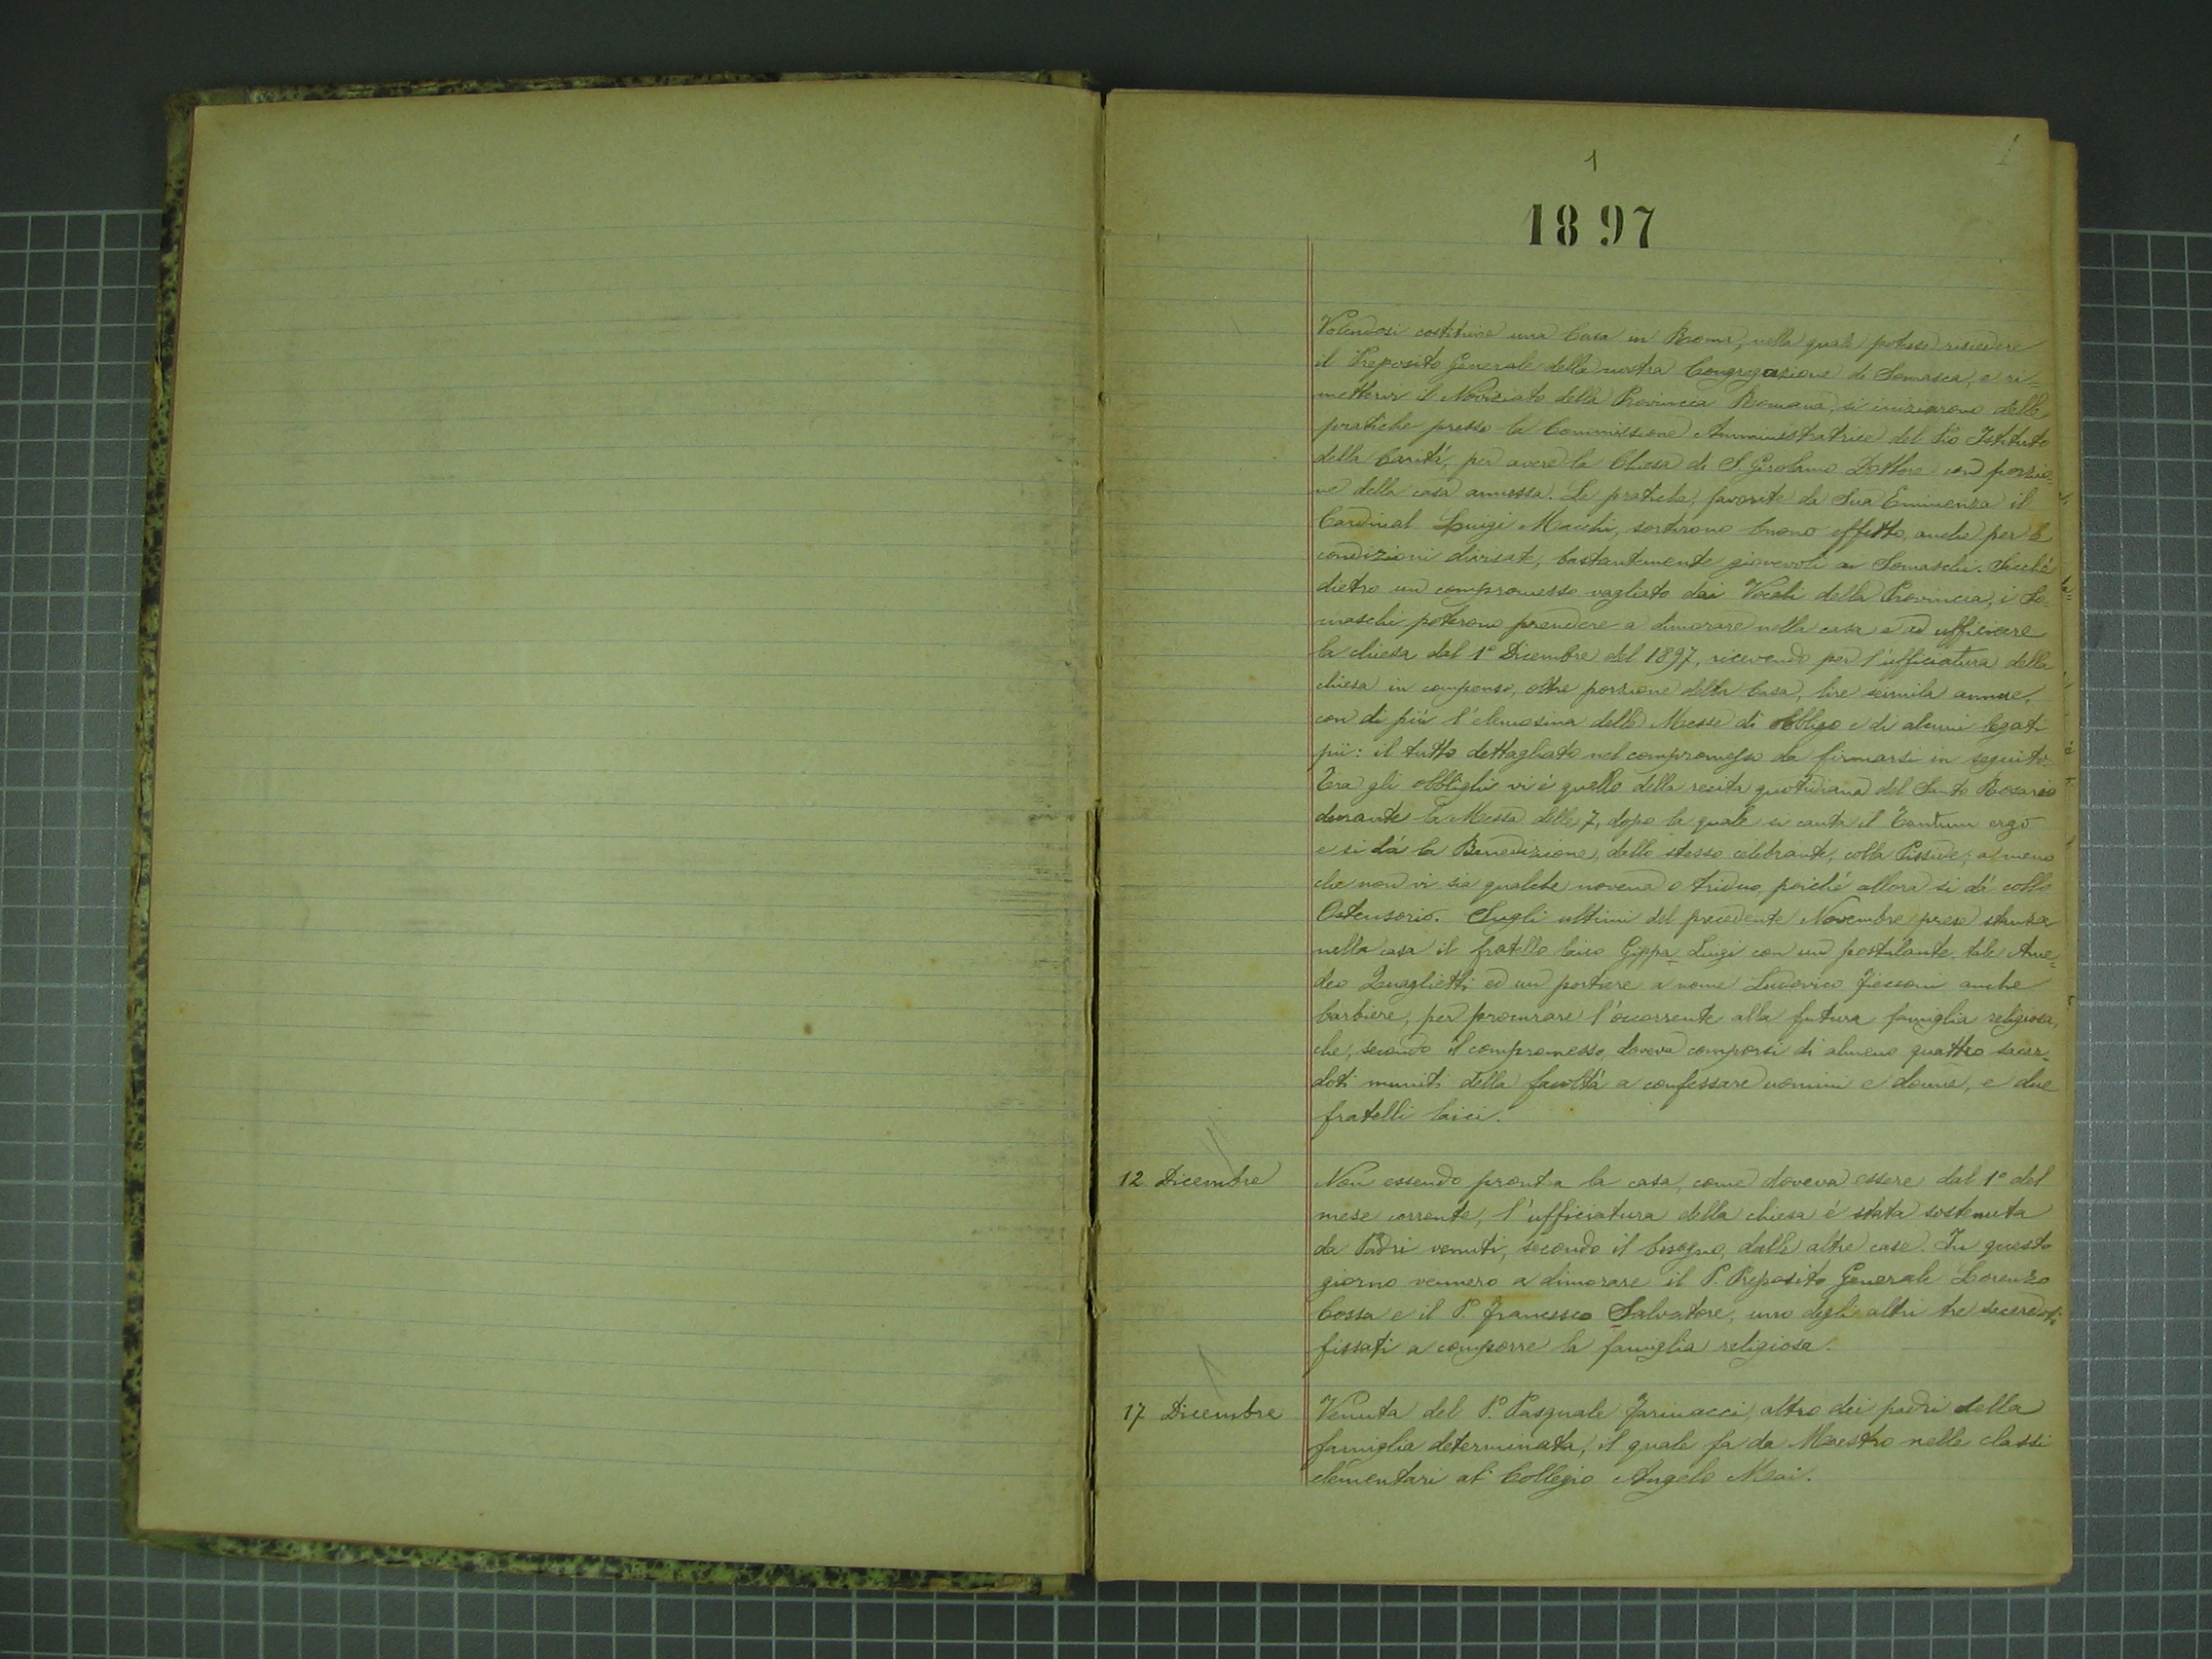 1
1
1897
Volendosi costituire una Casa in Roma, nella quale potesse risiedere
il Preposito Generale della nostra Congregazione di Somasca, e ri=
mettervi il Noviziato della Provincia Romana, si iniziarono delle
pratiche presso la Commissione Amministratrice del Pio Istituto
della Carità, per avere la Chiesa di S. Girolamo Dottore con porzio=
ne della casa annessa. Le pratiche, favorite da Sua Eminenza il
Cardinal Luigi Macchi, sortirono buono effetto, anche per le
condizioni divisate, bastantemente giovevoli ai Somaschi. Sicché
dietro un compromesso vagliato dai Vocali della Provincia, i So=
maschi poterono prendere a dimorare nella casa e ad ufficiare
la chiesa dal 1° Dicembre del 1897, ricevendo per l'ufficiatura della
chiesa in compenso, oltre porzione della Casa, lire seimila annue,
con di più l'elemosina delle Messe di obbligo e di alcuni legati
pii: il tutto dettagliato nel compromesso da firmarsi in seguito.
Tra gli obblighi vi è quello della recita quotidiana del Santo Rosario
durante la Messa delle 7, dopo la quale si canta il Tantum ergo
e si dà la Benedizione, dallo stesso celebrante, colla Pisside, a meno
che non vi sia qualche novena o triduo, poiché allora si dà collo
Ostensorio. Sugli ultimi del precedente Novembre prese stanza
nella casa il fratello laico Gippa Luigi con un postulante, tale Ame=
deo Quaglietti ed un portiere a nome Ludovico Fessoni anche
barbiere, per procurare l'occorrente alla futura famiglia religiosa,
che, secondo il compromesso, doveva comporsi di almeno quattro sacer=
doti muniti della facoltà a confessare uomini e donne, e due
fratelli laici.
12 Dicembre
Non essendo pronta la casa, come doveva essere dal 1° del
mese corrente, l'ufficiatura della chiesa è stata sostenuta
da Padri venuti, secondo il bisogno, dalle altre case. In questo
giorno vennero a dimorare il P. Preposito Generale Lorenzo
Cossa e il P. Francesco Salvatore, uno degli altri tre sacerdoti
fissati a comporre la famiglia religiosa.
17 Dicembre
Venuta del P. Pasquale Farinacci, altro dei padri della
famiglia determinata, il quale fa da Maestro nelle classi
elementari al Collegio Angelo Mai.